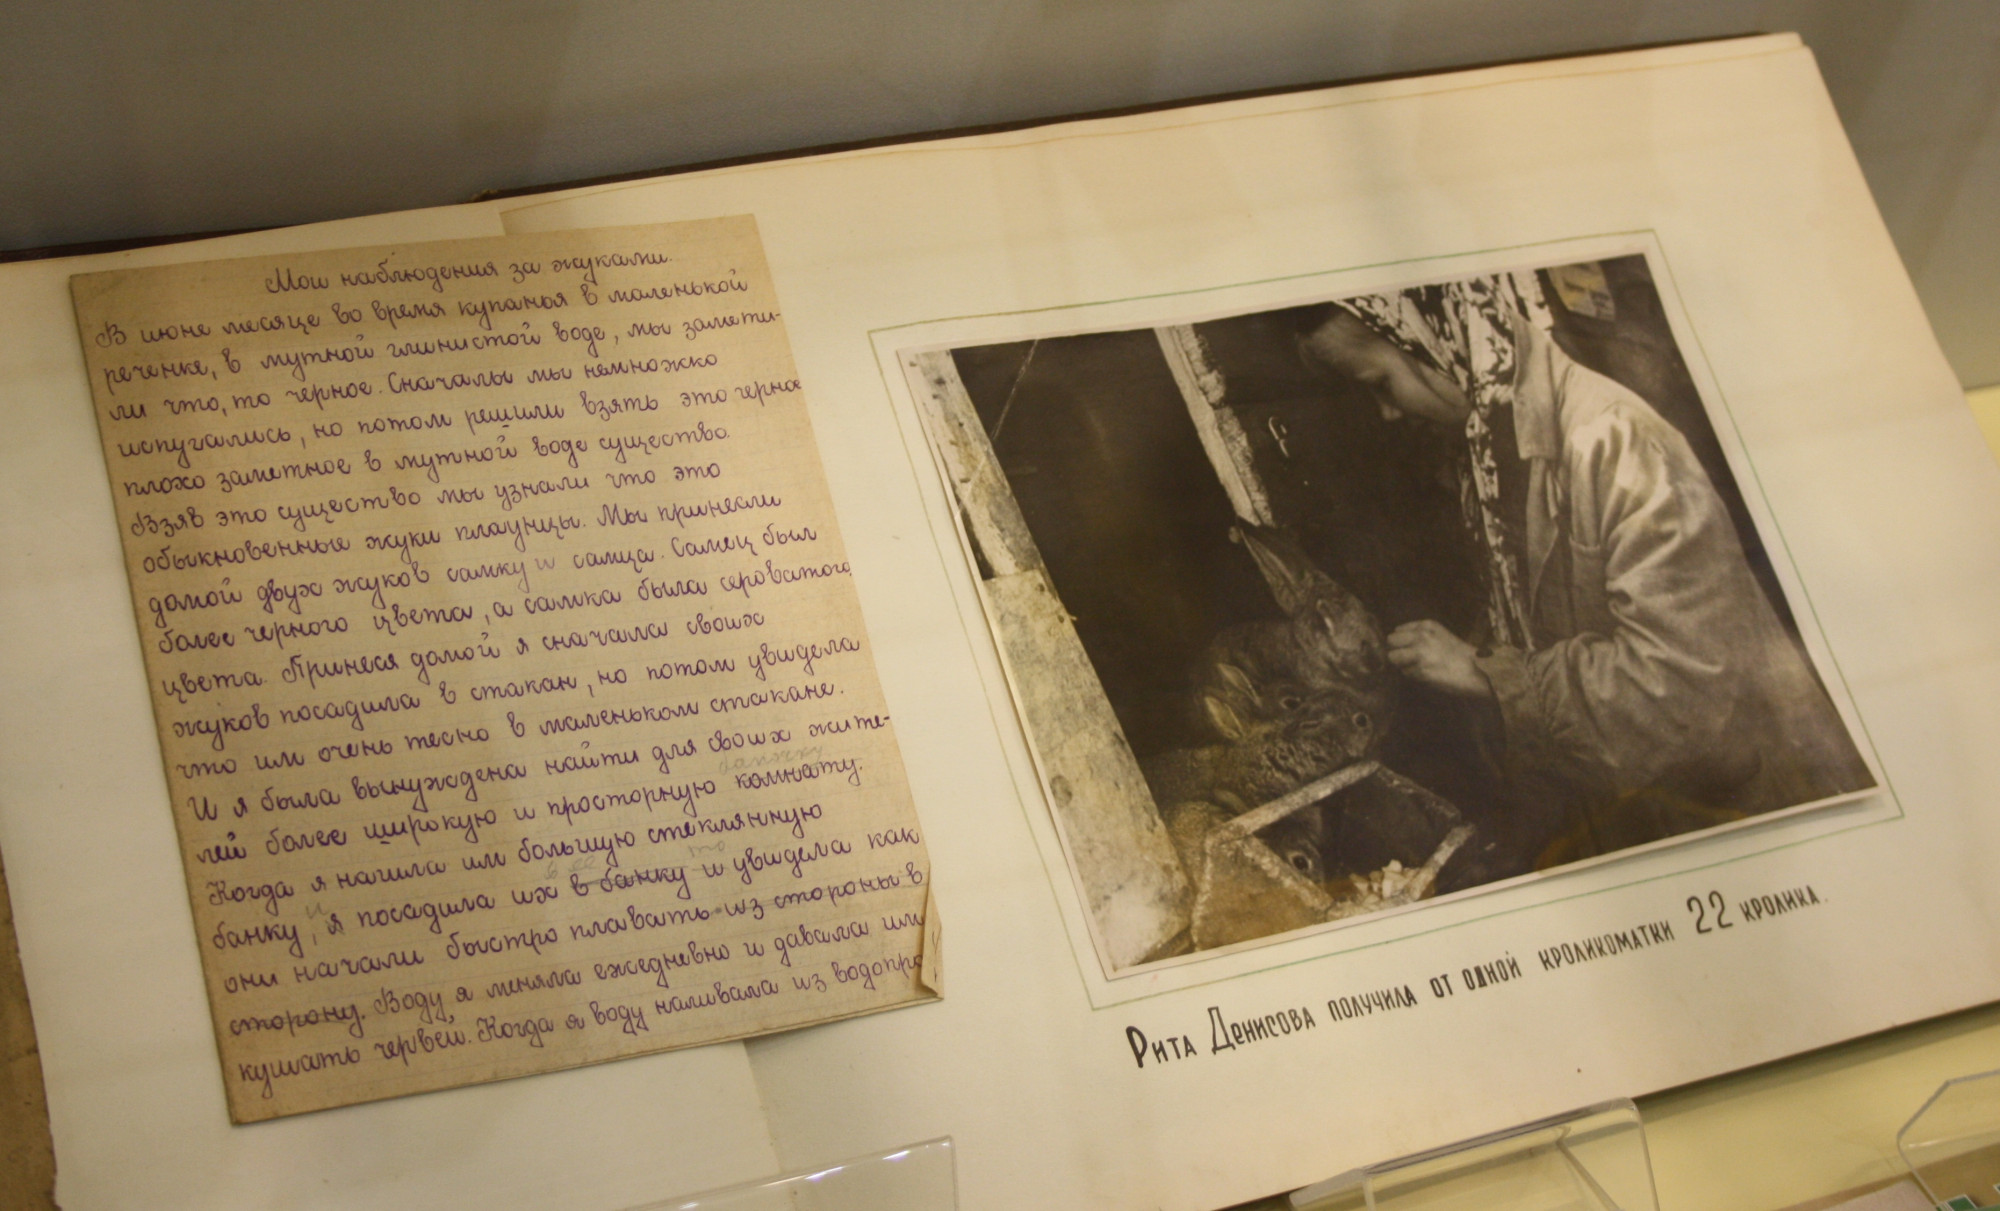 Мои наблюдения за жуками.
В июне месяце во время купанья в маленькой
реченке, в мутной глинистой воде, мы замети-
ли что, то черное. Сначалы мы немножко
испугались, но потом решили взять это черное
плохо заметное в мутной воде существо.
Взяв это существо мы узнали что это
обыкновенные жуки плаунцы. Мы принесли
домой двух жуков самку и самца. Самец был
более черного цвета, а самка была сероватого
цвета. Принеся домой я сначала своих
жуков посадила в стакан, но потом увидела
что им очень тесно в маленьком стакане.
И я была вынуждена найти для своих жите-
банку
лей более широкую и просторную комнату.
Когда я нашла им большую стеклянную
в ее то
банку, и я посадила их в банку и увидела как
они начали быстро плавать из стороны в
сторону. Воду я меняла ежедневно и давала им
кушать червей. Когда я воду наливала из водопро
Рита Денисова получила от одной кроликоматки 22 кролика.